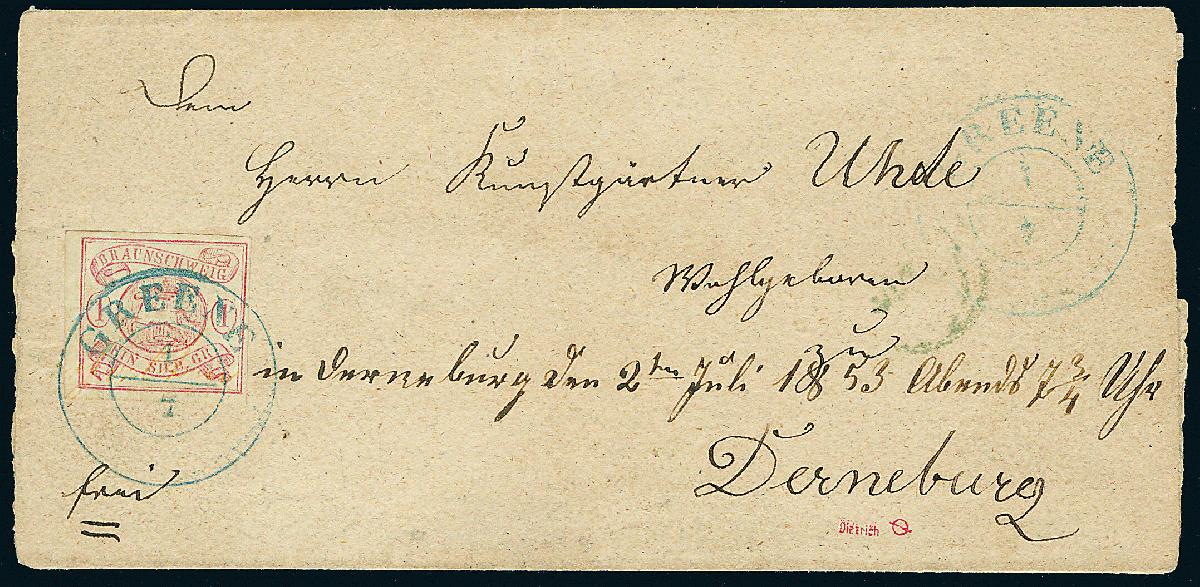 Dem
Herrn Kunstgärtner Uhde
Wohlgeboren
zu
in Derneburg den 2ten Juli 1853 Abends 7 3/4 Uhr
Derneburg
frei
BRAUNSCHWEIG
1 1
EIN SILB. GR.
GREENE
1
7
GREENE
1
7
Dietrich